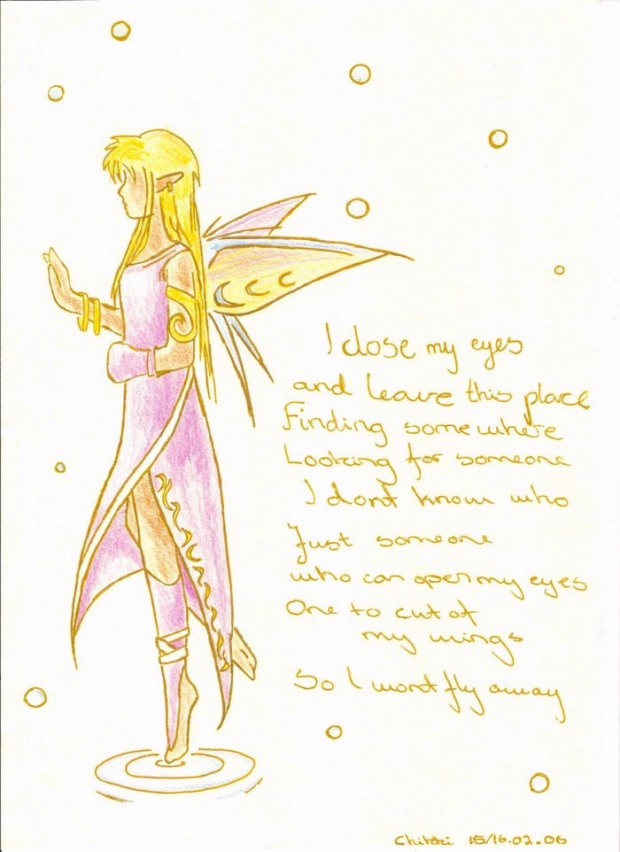 I close my eyes
and leave this place
Finding somewhere
Looking for someone
I dont know who
Just someone
who can open my eyes
One to cut of
my wings
So I wont fly away
15/16.02.06